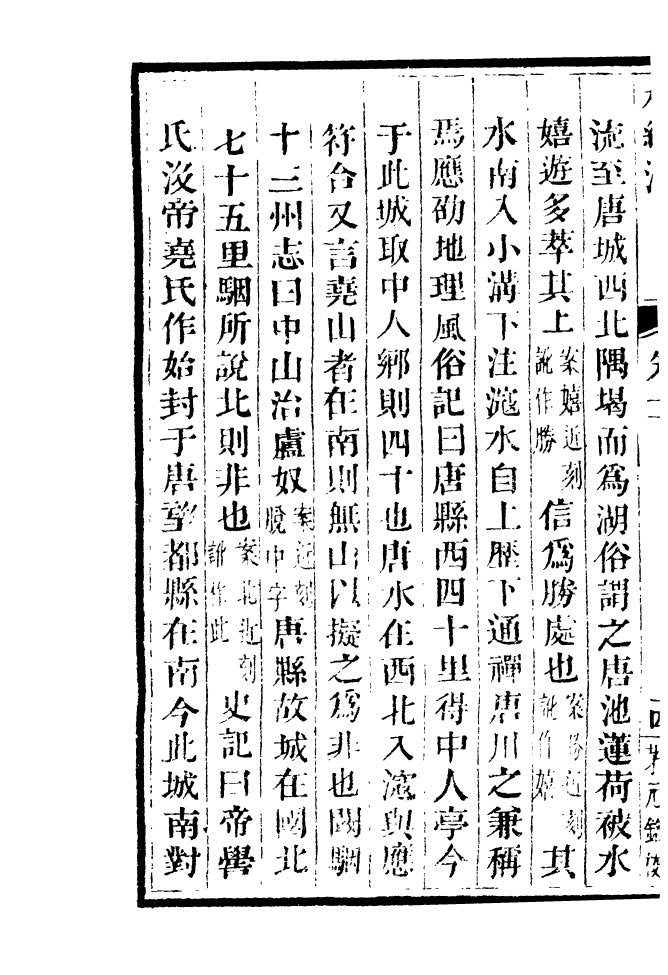 流至唐城西北隅堨而爲湖俗謂之唐池蓮荷被水
嬉遊多萃其上案嬉近刻訛作勝信爲勝處也案勝近刻訛作嬉其
水南入小溝下注滱水自上歷下通禪唐川之兼稱
焉應劭地理風俗記曰唐縣西四十里得中人亭今
于此城取中人鄉則四十也唐水在西北入滱與應
符合又言堯山者在南則無山以擬之爲非也闞駰
十三州志曰中山治盧奴案近刻脫中字唐縣故城在國北
七十五里駰所說北則非也案北近刻訛作此史記曰帝嚳
氏沒帝堯氏作始封于唐望都縣在南今此城南對